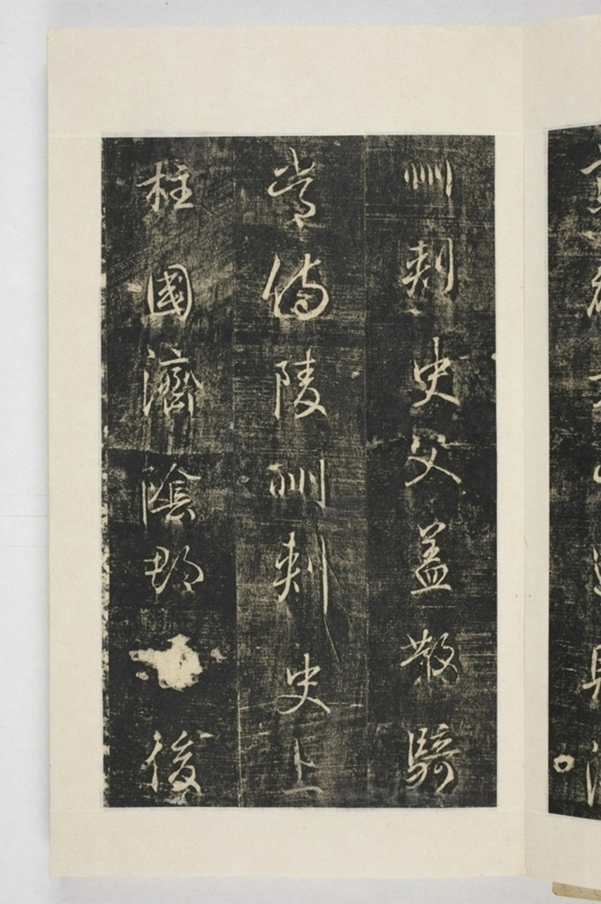 州刺史父蓋散騎
常侍陵州刺史上
柱國濟陰郡後